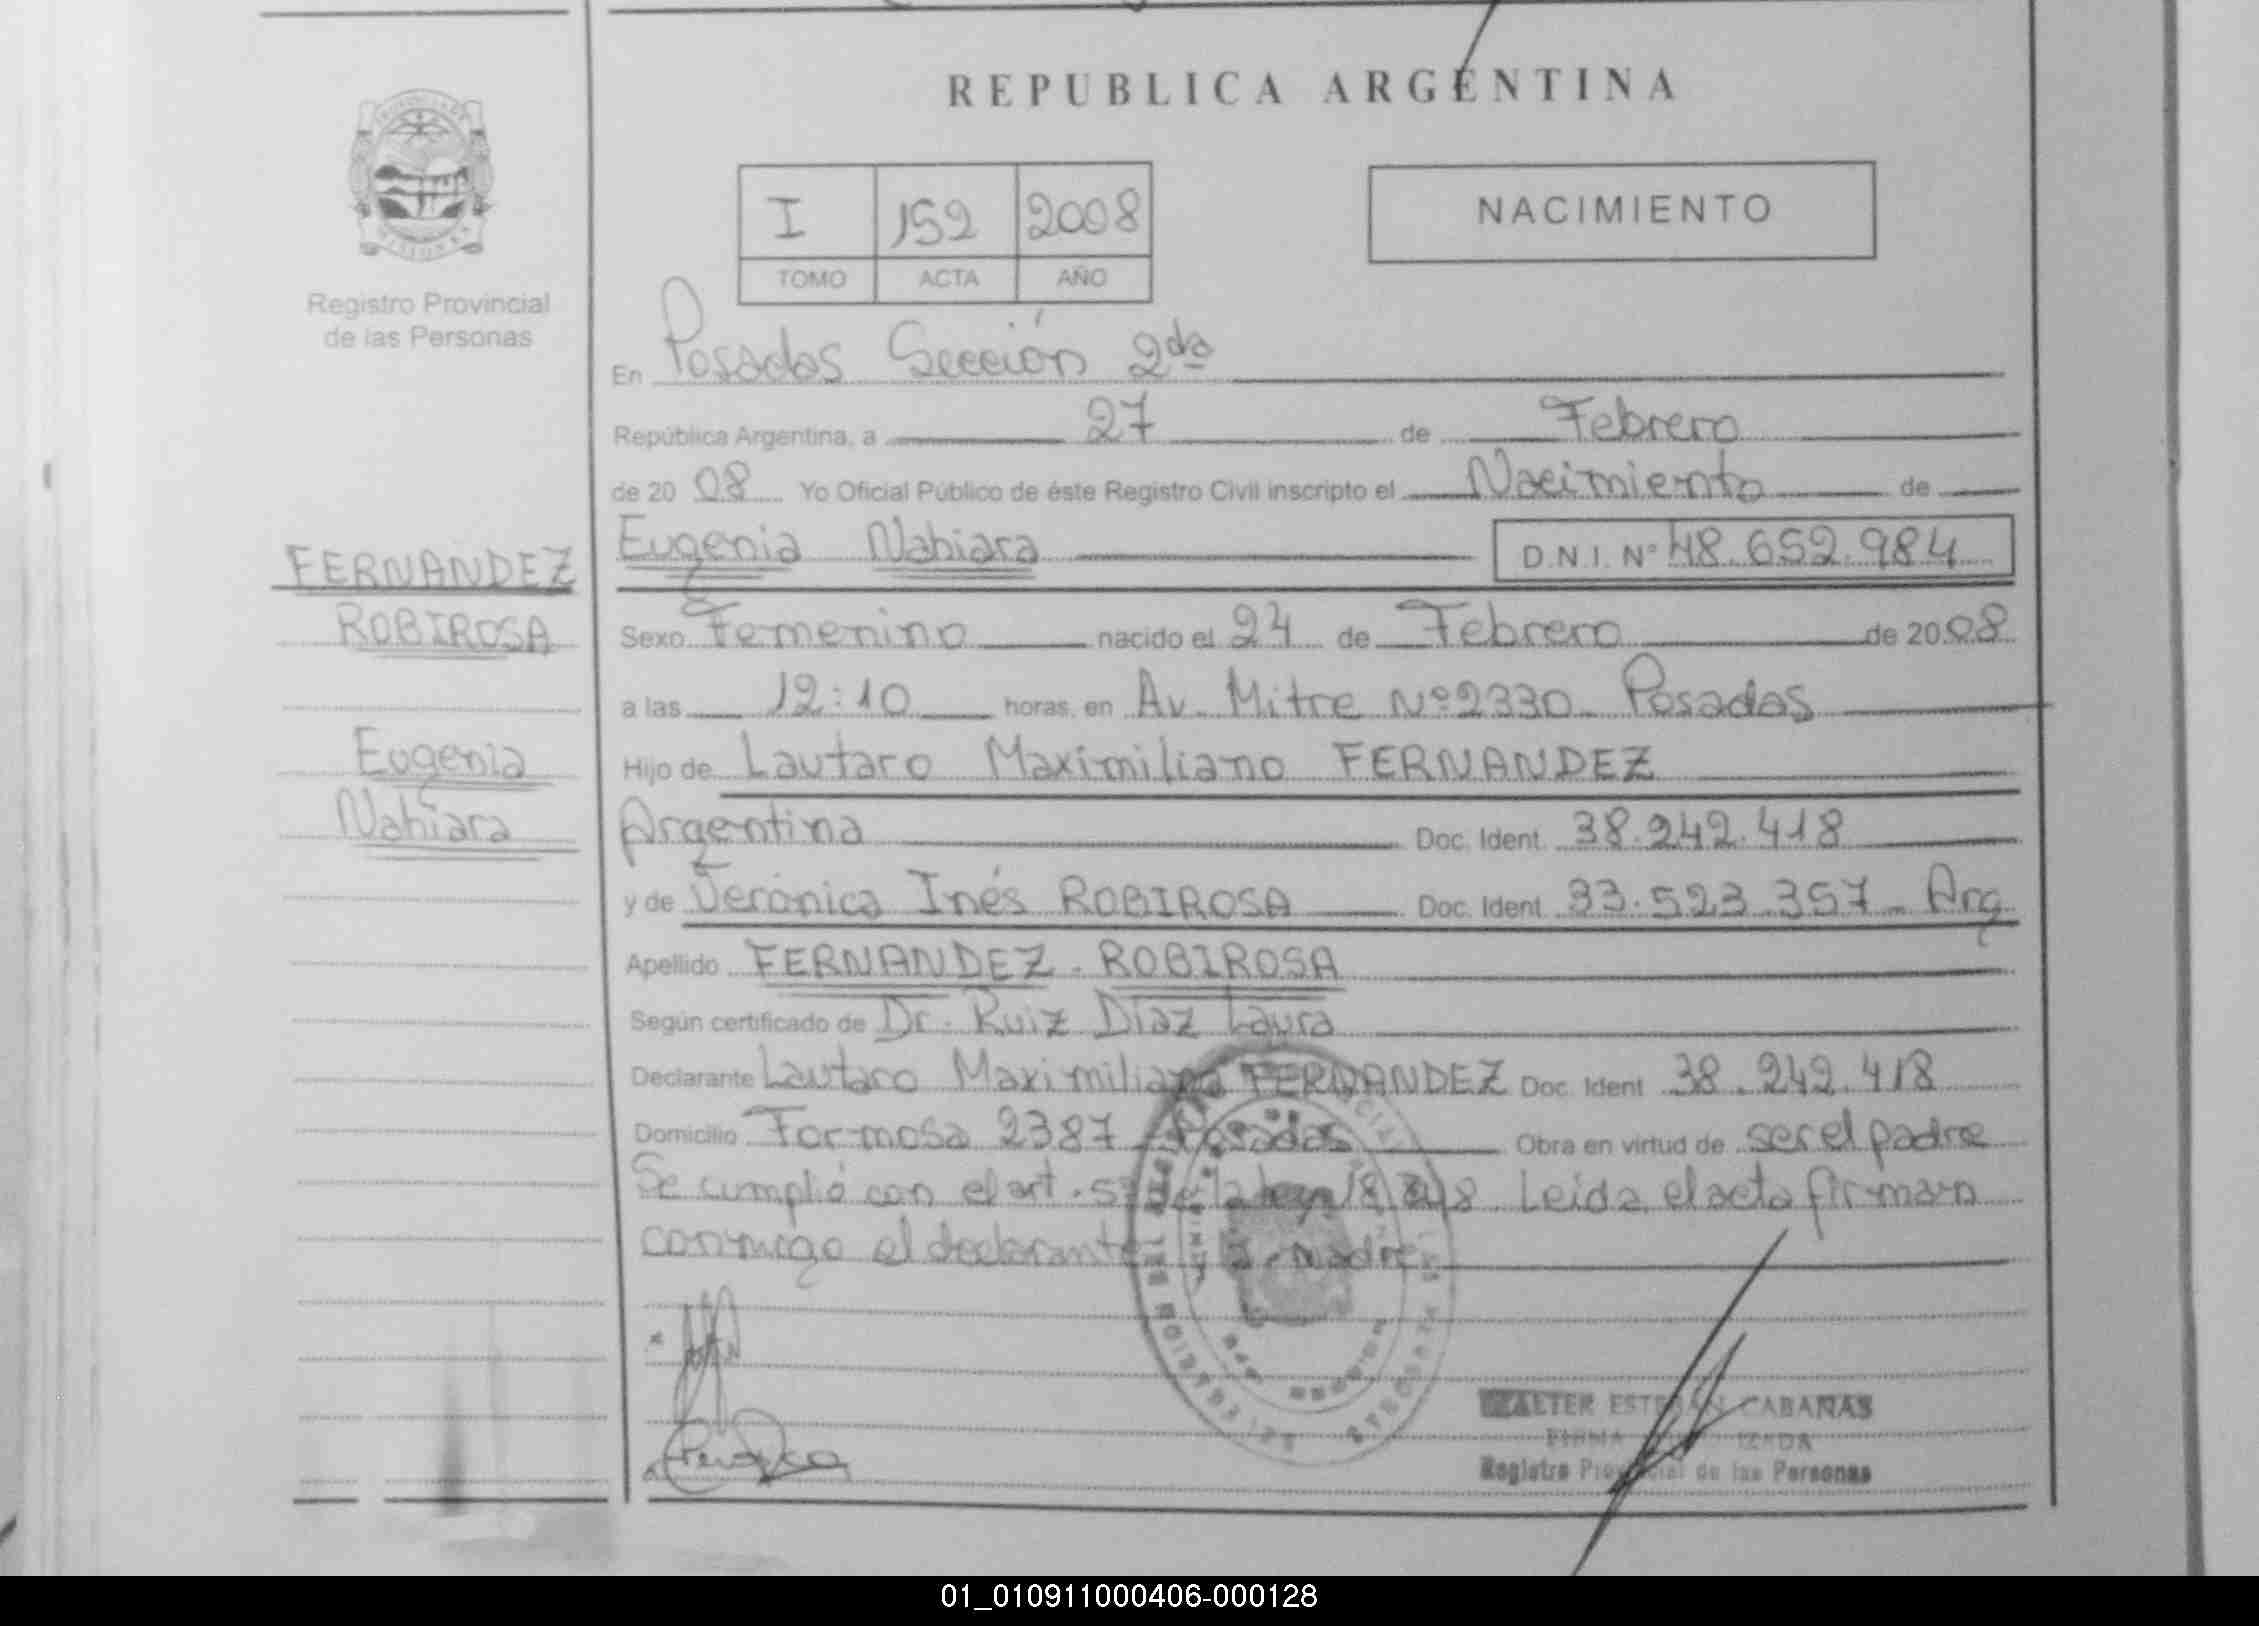 REPUBLICA ARGENTINA
I 152 2008
TOMO ACTA AÑO
NACIMIENTO
MISIONES
Registro Provincial
de las Personas
FERNANDEZ
ROBIROSA
Eugenia
Nahiara
En Posadas Sección 2da
República Argentina, a 27 de Febrero
de 20 08 Yo Oficial Público de éste Registro Civil inscripto el Nacimiento de
Eugenia Nahiara D.N.I. Nº 48.652.984
Sexo Femenino nacido el 24 de Febrero de 20 08
a las 12:10 horas, en Av. Mitre Nº 2330 - Posadas
Hijo de Lautaro Maximiliano FERNANDEZ
Argentina Doc. Ident. 38.242.418
y de Verónica Inés ROBIROSA Doc. Ident. 33.523.357 - Arg
Apellido FERNANDEZ - ROBIROSA
Según certificado de Dr. Ruiz Díaz Laura
Declarante Lautaro Maximiliano FERNANDEZ Doc. Ident 38.242.418
Domicilio Formosa 2387 - Posadas Obra en virtud de ser el padre
Se cumplió con el art. de la ley Leída el acta firman
conmigo el declarante madre
WALTER ESTEBAN CABAÑAS
FIRMA AUTORIZADA
Registro Provincial de las Personas
01_010911000406-000128